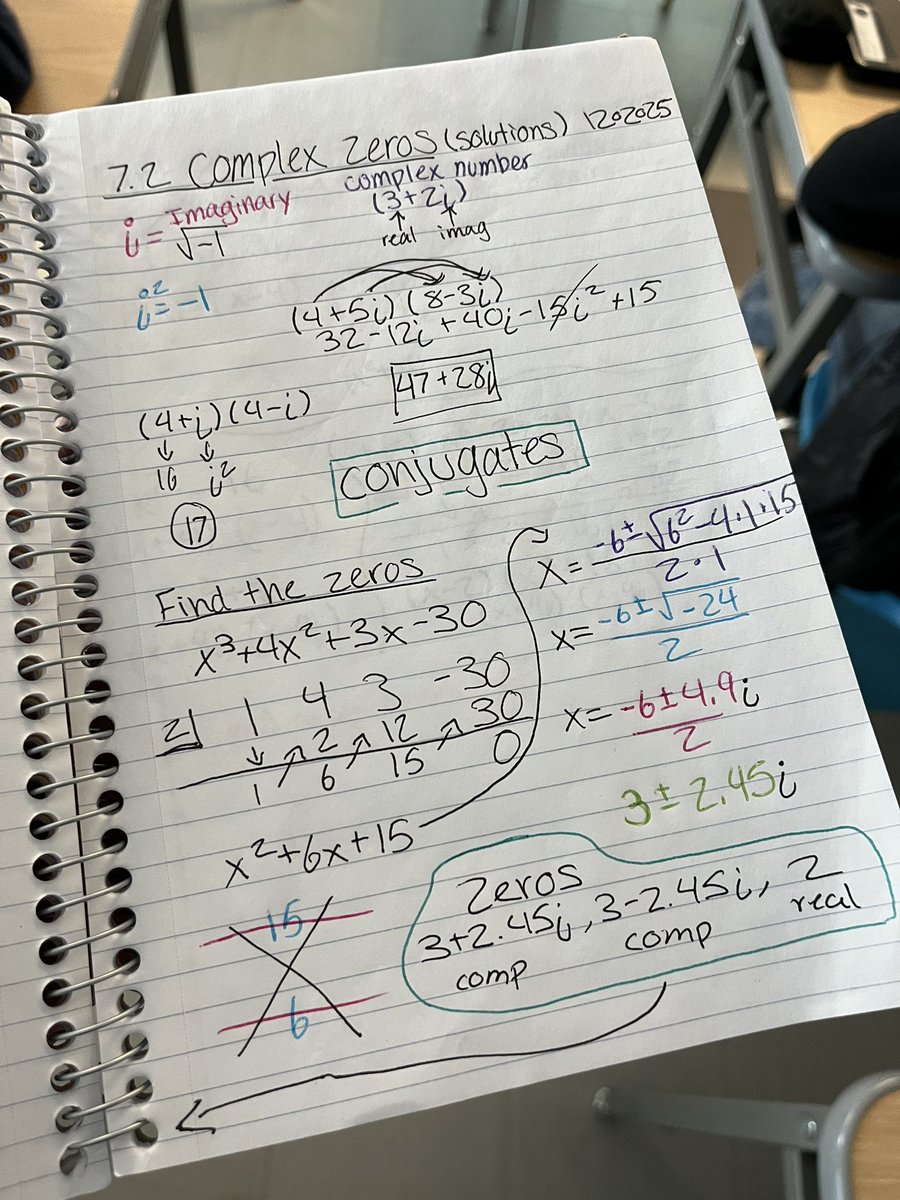 7.2 Complex Zeros (solutions) 1202025
i = Imaginary √-1
complex number
(3+2i)
↑ ↑
real imag
i² = -1
(4+5i)(8-3i)
32-12i+40i-15i²+15
47+28i
(4+i)(4-i)
↓ ↓
16 i²
17
conjugates
Find the zeros
x³+4x²+3x-30
2| 1 4 3 -30
↓ 2 12 30
1 6 15 0
x²+6x+15
15
6
x = -6±√6²-4·1·15 / 2·1
x = -6±√-24 / 2
x = -6±4.9i / 2
3±2.45i
Zeros
3+2.45i, 3-2.45i, 2
comp comp real